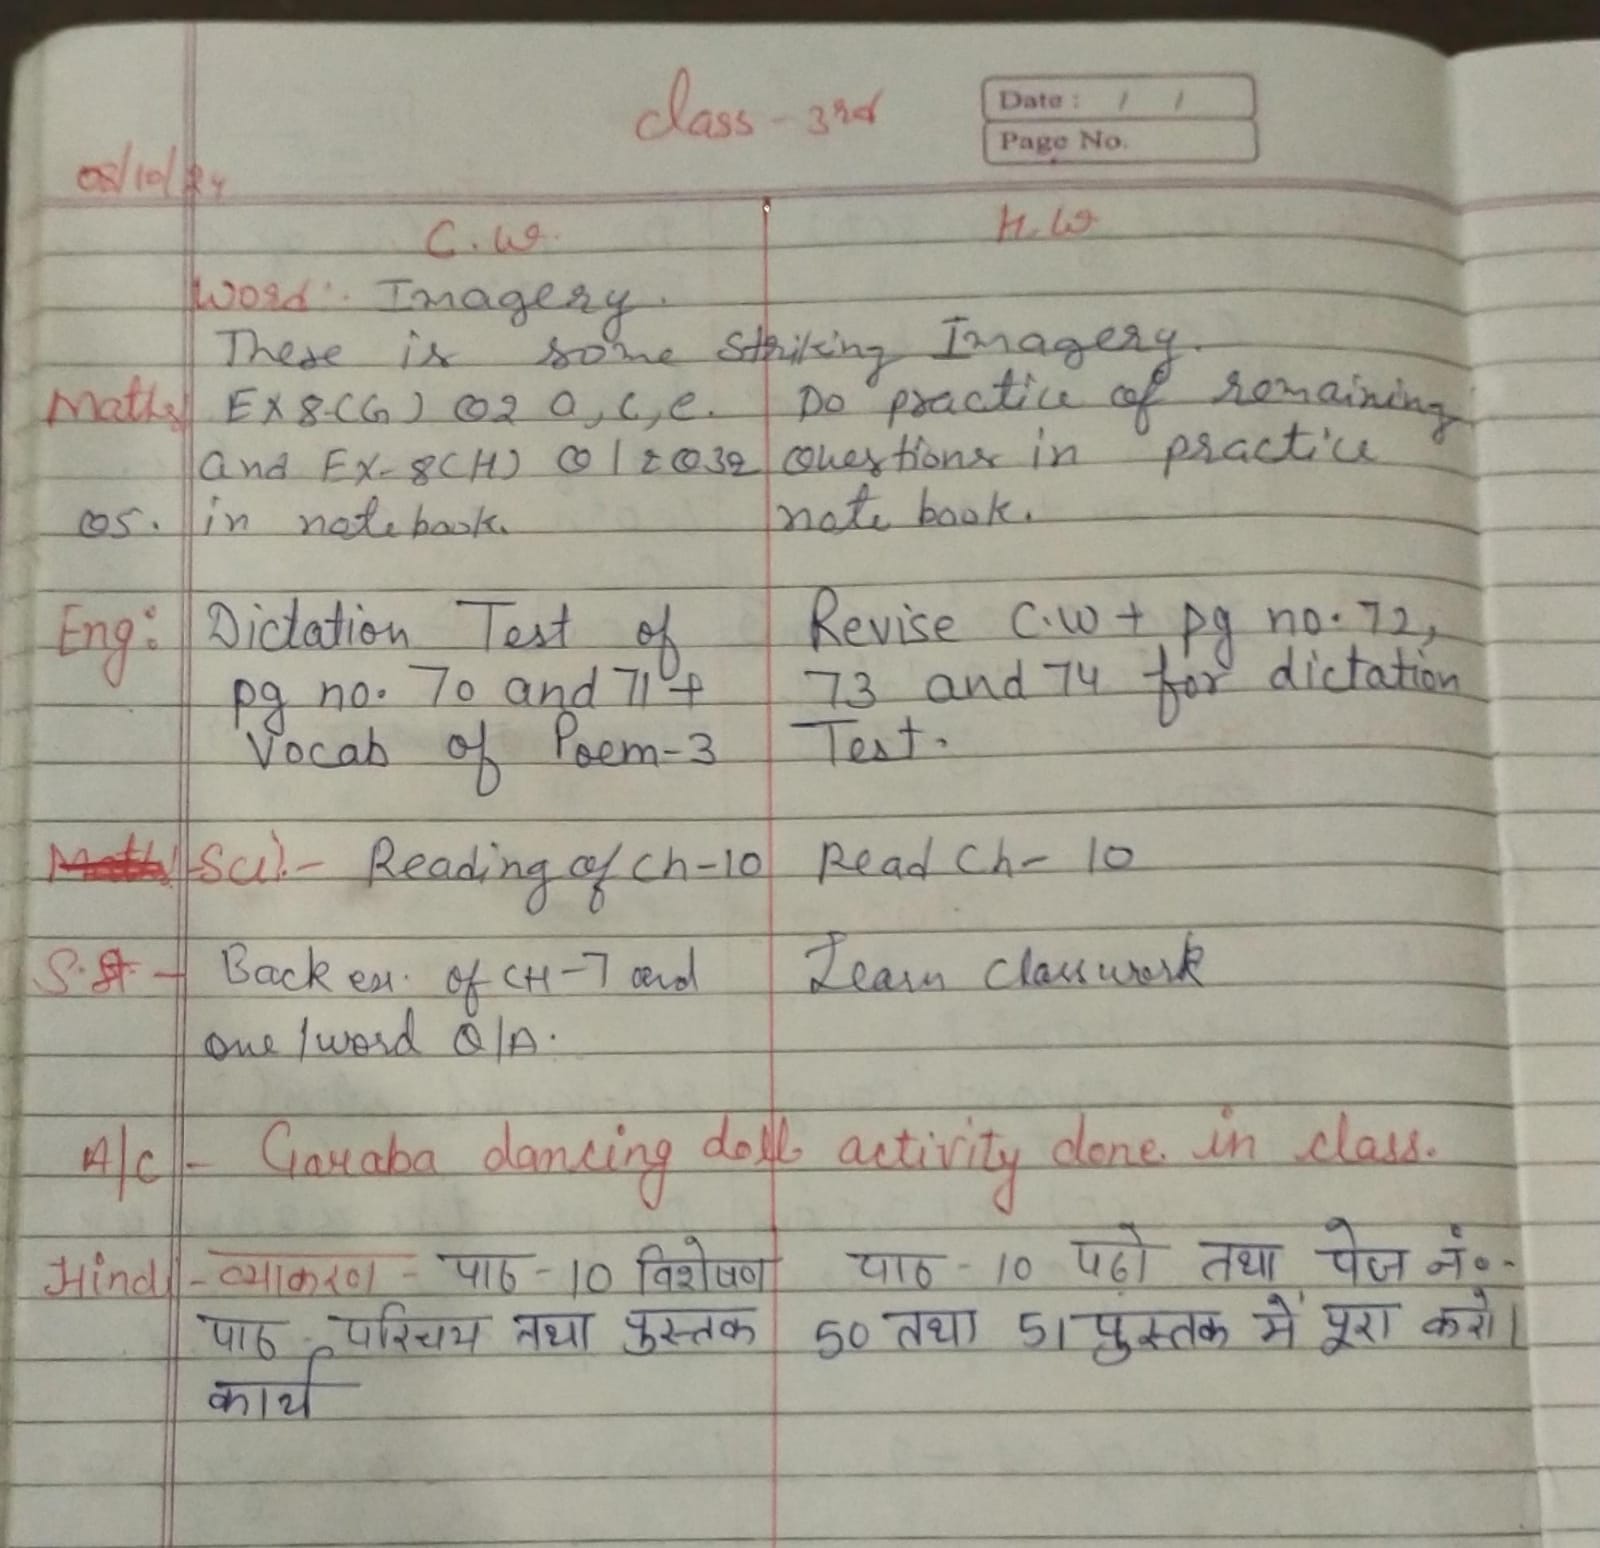 class - 3rd
Date : / /
Page No.
08/10/24
C.W. H.W
Word:- Imagery.
There is some striking Imagery.
Maths EX 8(G) Q2 a, c, e. Do practice of remaining
and EX-8(H) Q1 Q3 questions in practice
Q5. in notebook. note book.
Eng: Dictation Test of Revise C.W + pg no. 72,
pg no. 70 and 71 + 73 and 74 for dictation
Vocab of Poem-3 Test.
Sci:- Reading of Ch-10 Read Ch- 10
S.St - Back ex. of CH-7 and Learn classwork
one/word Q/A.
A/C - Garaba dancing doll activity done in class.
Hindi - व्याकरण - पाठ -10 विशेषण पाठ - 10 पढ़ो तथा पेज नं०-
पाठ - परिचय तथा पुस्तक 50 तथा 51 पुस्तक में पूरा करो।
कार्य